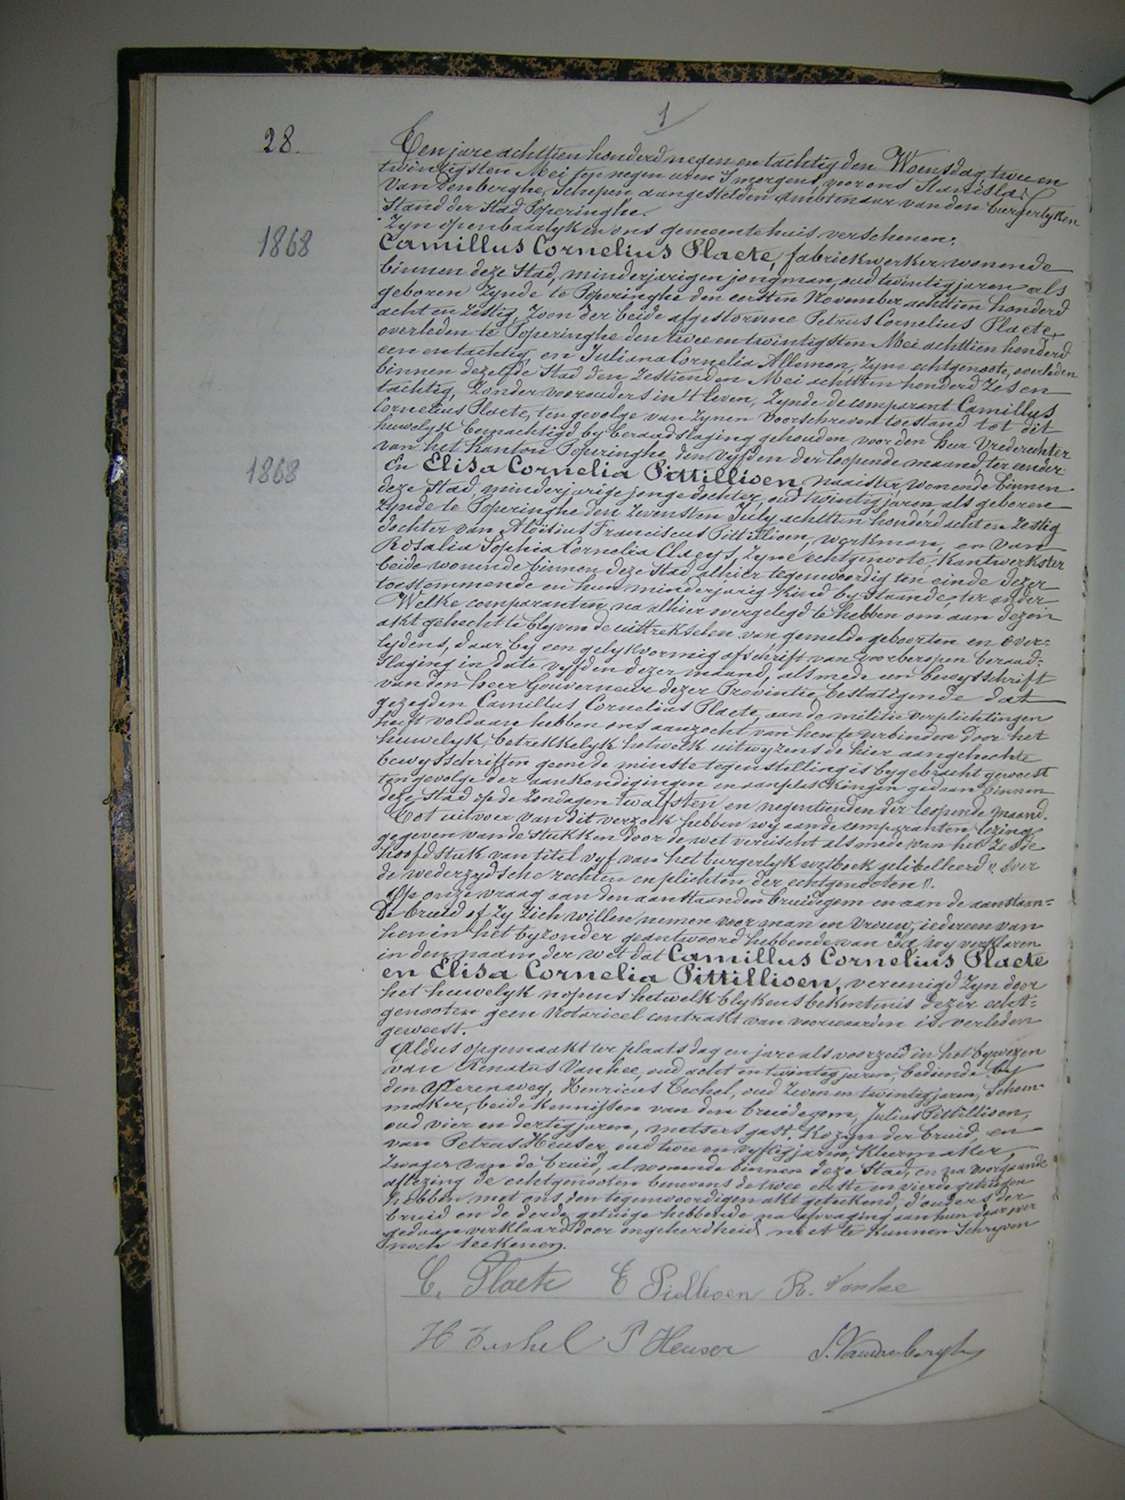 1
28.
Ten jare achttien honderd negen en tachtig den Woensdag, twee en
twintigsten Mei, ten negen uren 's morgens, voor ons Stanislas
Vandenberghe, Schepen, aangestelden ambtenaar van den burgerlyken
Stand der Stad Poperinghe.
Zyn openbaarlyk in ons gemeentehuis verschenen:
1868
Camillus Cornelius Plaete, fabriekwerker, wonende
binnen deze Stad, minderjarigen jongman, oud twintig jaren, als
geboren zynde te Poperinghe den eersten November achttien honderd
acht en zestig, Zoon der beide afgestorvene Petrus Cornelius Plaete,
overleden te Poperinghe den twee en twintigsten Mei achttien honderd
een en tachtig, en Juliana Cornelia Alleman, zyne echtgenoote, overleden
binnen dezelfde Stad den zestienden Mei achttien honderd zes en
tachtig, zonder voorouders in 't leven, zynde de comparant Camillus
Cornelius Plaete, ten gevolge van zynen voorschreven toestand tot dit
huwelyk bemachtigd by beraadslaging gehouden voor den Heer Vrederechter
van het Kanton Poperinghe den vyfden der loopende maand, ter eender
1868
En Elisa Cornelia Pittillioen, naaister, wonende binnen
deze Stad, minderjarige jonge dochter, oud twintig jaren, als geboren
zynde te Poperinghe den zevensten July achttien honderd acht en zestig
dochter van Aloïsius Franciscus Pittillioen, werkman, en van
Rosalia Sophia Cornelia Claeys, zyne echtgenoote, Kantwerkster
beide wonende binnen deze Stad, alhier tegenwoordig ten einde dezer
toestemmende en hun minderjarig Kind bystaande, ter ander.
Welke comparanten, na alhier overgelegd te hebben om aan dezen
akt gehecht te blyven de uittrekselen van gemelde geboorten en over=
lydens, daar by een gelykvormig afschrift van voorberoepen beraad=
slaging in date vyfden dezer maand, als mede een bewysschrift
van den heer Gouverneur dezer Provintie, bestatigende dat
gezegden Camillus Cornelius Plaete, aan de militie verplichtingen
heeft voldaan hebben ons aanzocht van hen te verbinden door het
huwelyk, betrekkelyk hetwelk uitwyzens de hier aangehechte
bewysschriften geene de minste tegenstelling is bygebracht geweest
ten gevolge der aankondigingen en aanplakkingen gedaan binnen
deze Stad op de Zondagen twaalfsten en negentienden der loopende maand.
Tot uitvoer van dit verzoek hebben wy aan de comparanten lezing
gegeven van de stukken door de wet vereischt als mede van het Zesde
hoofdstuk van titel vyf van het burgerlyk wetboek gelibelleerd "over
de wederzydsche rechten en plichten der echtgenooten".
Op onze vraag aan den aanstaanden bruidegom en aan de aanstaan=
de bruid of zy zich willen nemen voor man en vrouw, iedereen van
hen in het byzonder geantwoord hebbende van Ja, wy verklaren
in den naam der wet dat Camillus Cornelius Plaete
en Elisa Cornelia Pittillioen, vereenigd zyn door
het huwelyk nopens hetwelk blykens bekentenis dezer echt=
genooten geen notarieel contrakt van voorwaarden is verleden
geweest.
Aldus opgemaakt ter plaats dag en jare als voorzeid in het bywezen
van Renatus Vanhee, oud acht en twintig jaren, bediende by
den yzerenweg, Henricus Cechel, oud zeven en twintig jaren, Schoen=
maker, beide kennissen van den bruidegom, Julius Pittillioen,
oud vier en dertig jaren, metsersgast, Kozyn der bruid, en
van Petrus Heuser, oud twee en vyftig jaren, Kleermaker,
Zwager van de bruid, al wonende binnen deze Stad, en na voorgaande
aflezing de echtgenooten benevens de twee eerste en vierde getuigen
hebben met ons den tegenwoordigen akt geteekend, d'ouders der
bruid en de derde getuige hebbende na afvraging aan hun daar over
gedaan verklaard door ongeleerdheid niet te kunnen Schryven
noch teekenen.
C. Plaete E Pidlioen R. Vanhee
H Eechel P Heuser S. Vandenberghe